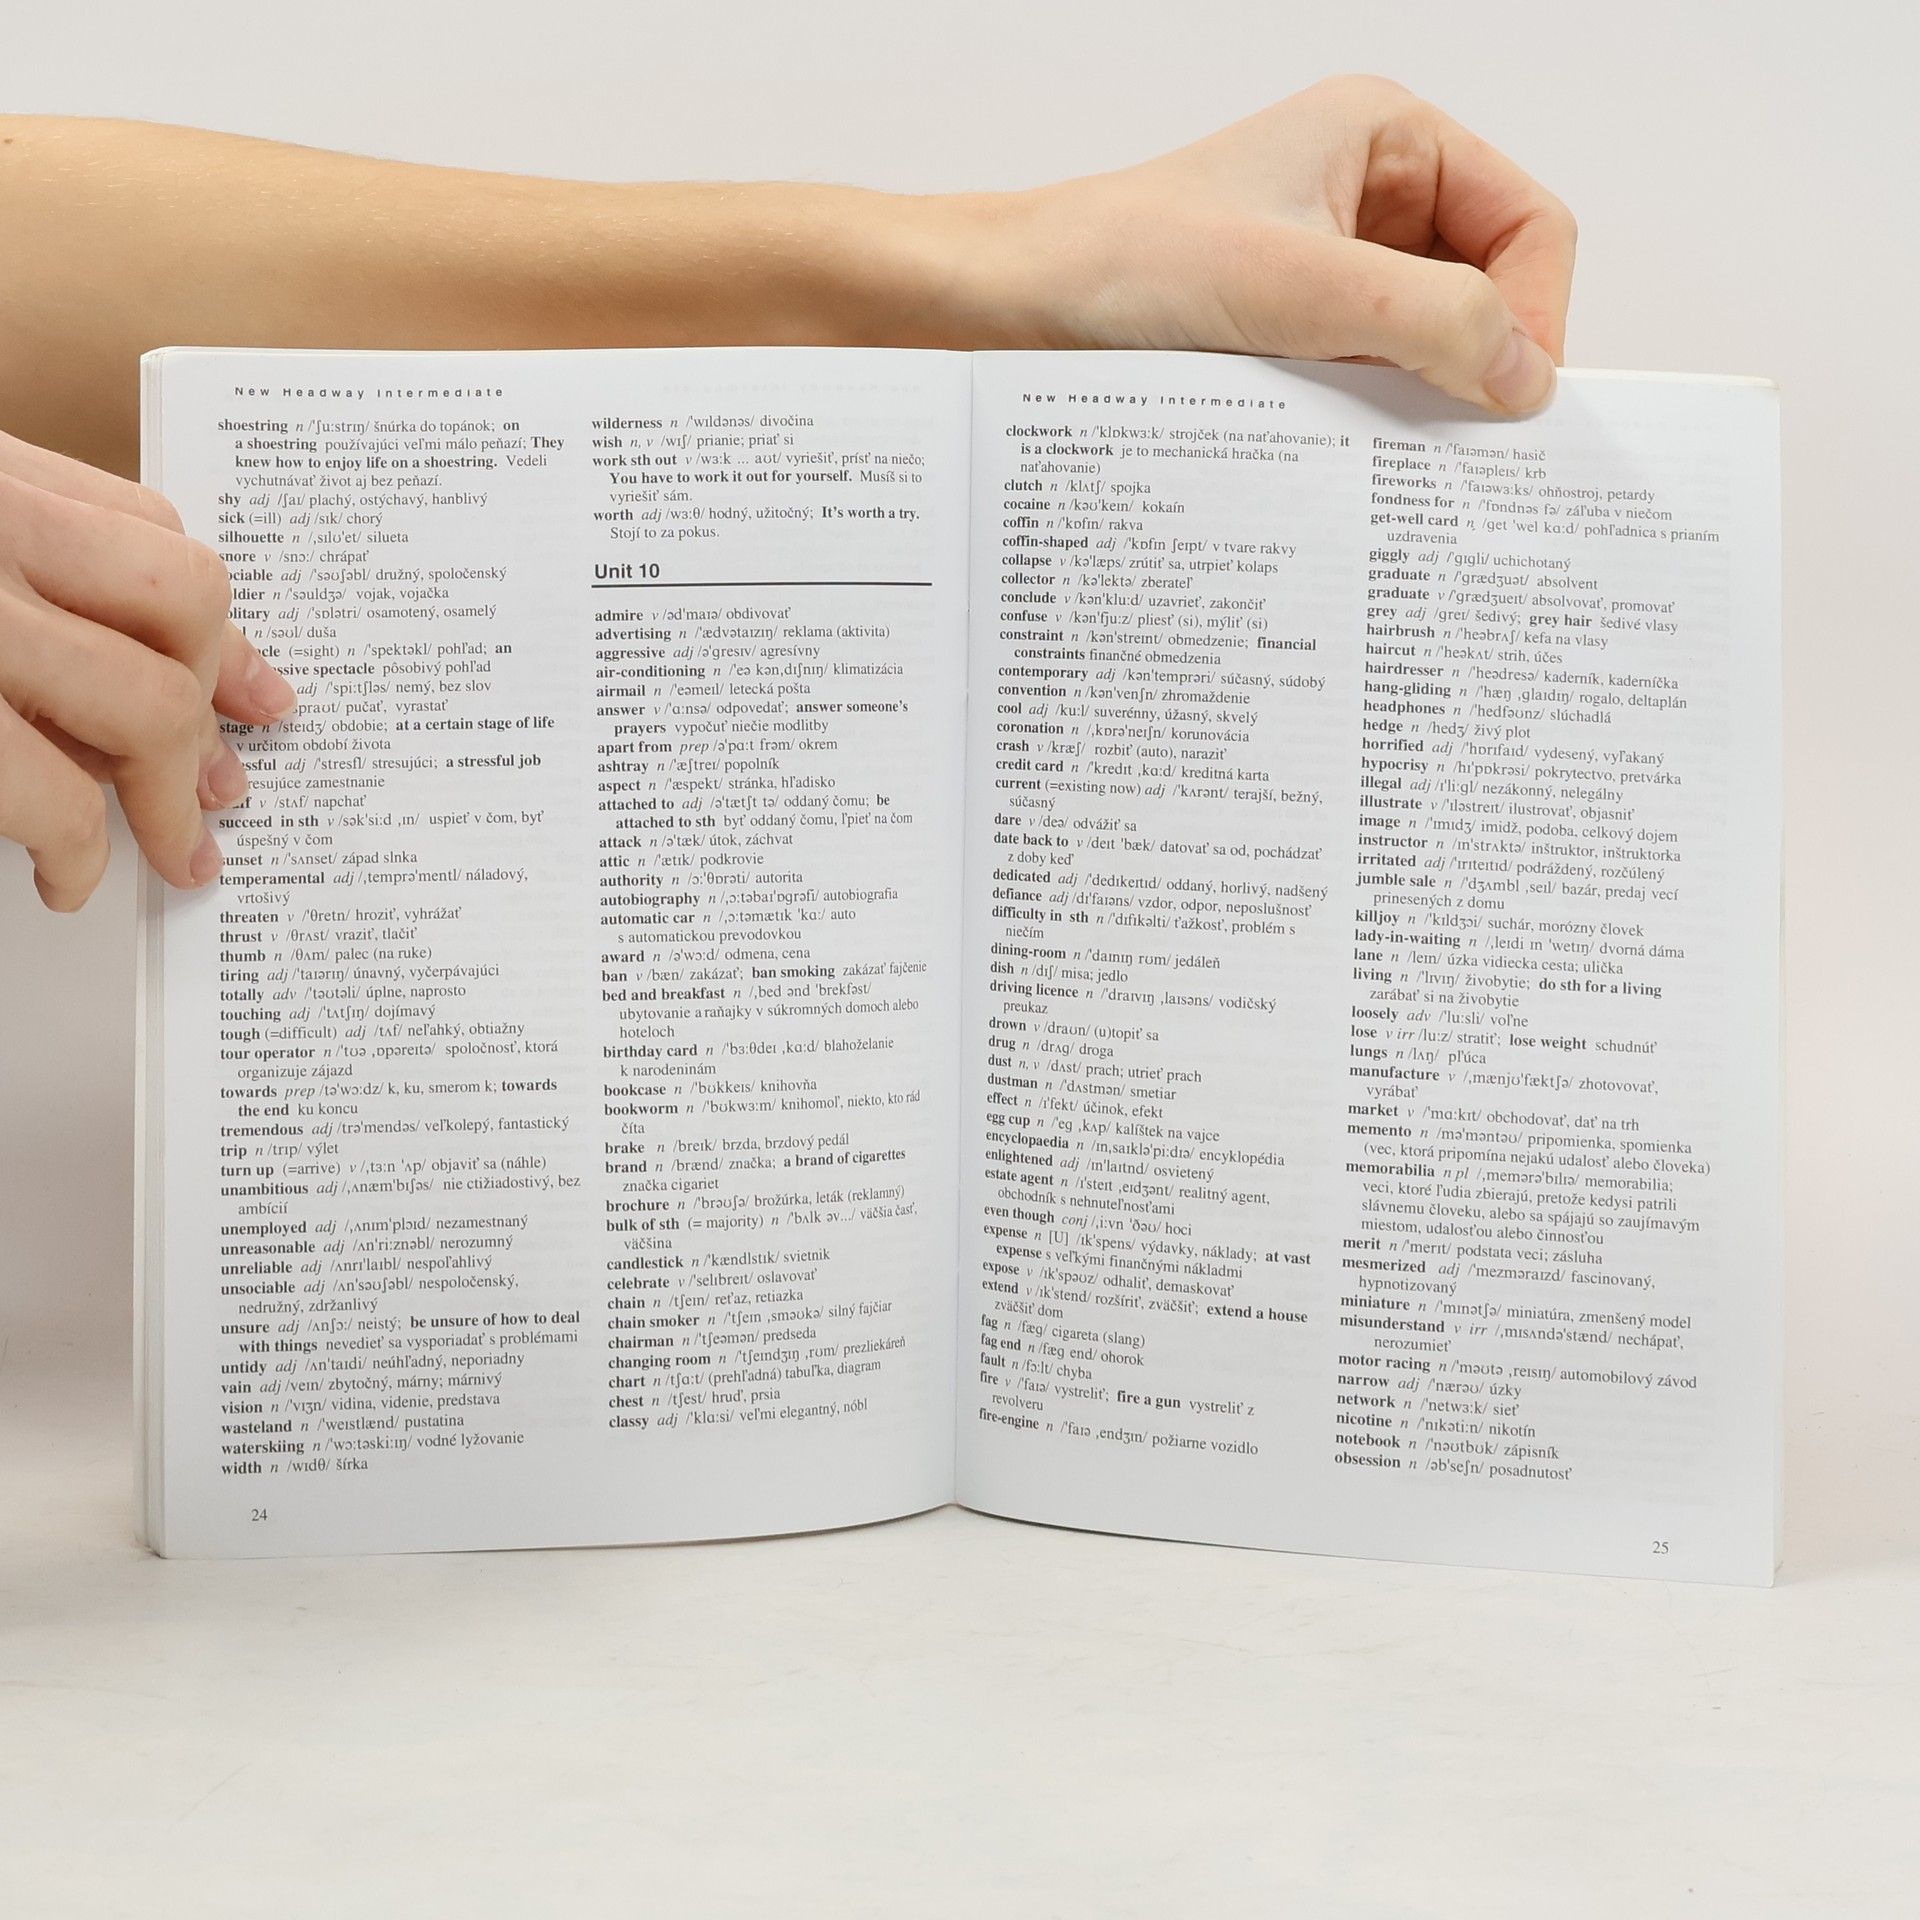 New Headway Intermediate
shoestring n /'ʃu:strɪŋ/ šnúrka do topánok; on
a shoestring používajúci veľmi málo peňazí; They
knew how to enjoy life on a shoestring. Vedeli
vychutnávať život aj bez peňazí.
shy adj /ʃaɪ/ plachý, ostýchavý, hanblivý
sick (=ill) adj /sɪk/ chorý
silhouette n /ˌsɪlʊ'et/ silueta
snore v /snɔ:/ chrápať
ociable adj /'səʊʃəbl/ družný, spoločenský
ldier n /'səuldʒə/ vojak, vojačka
olitary adj /'sɒlətri/ osamotený, osamelý
l n /səʊl/ duša
acle (=sight) n /'spektəkl/ pohľad; an
ssive spectacle pôsobivý pohľad
adj /'spi:tʃləs/ nemý, bez slov
spraʊt/ pučať, vyrastať
stage n /steɪdʒ/ obdobie; at a certain stage of life
v určitom období života
essful adj /'stresfl/ stresujúci; a stressful job
resujúce zamestnanie
v /stʌf/ napchať
succeed in sth v /sək'si:d ˌɪn/ uspieť v čom, byť
úspešný v čom
sunset n /'sʌnset/ západ slnka
temperamental adj /ˌtemprə'mentl/ náladový,
vrtošivý
threaten v /'θretn/ hroziť, vyhrážať
thrust v /θrʌst/ vraziť, tlačiť
thumb n /θʌm/ palec (na ruke)
tiring adj /'taɪərɪŋ/ únavný, vyčerpávajúci
totally adv /'təʊtəli/ úplne, naprosto
touching adj /'tʌtʃɪŋ/ dojímavý
tough (=difficult) adj /tʌf/ neľahký, obtiažny
tour operator n /'tʊə ˌɒpəreɪtə/ spoločnosť, ktorá
organizuje zájazd
towards prep /tə'wɔ:dz/ k, ku, smerom k; towards
the end ku koncu
tremendous adj /trə'mendəs/ veľkolepý, fantastický
trip n /trɪp/ výlet
turn up (=arrive) v /ˌtɜ:n 'ʌp/ objaviť sa (náhle)
unambitious adj /ˌʌnæm'bɪʃəs/ nie ctižiadostivý, bez
ambícií
unemployed adj /ˌʌnɪm'plɔɪd/ nezamestnaný
unreasonable adj /ʌn'ri:znəbl/ nerozumný
unreliable adj /ʌnrɪ'laɪbl/ nespoľahlivý
unsociable adj /ʌn'səʊʃəbl/ nespoločenský,
nedružný, zdržanlivý
unsure adj /ʌnʃɔ:/ neistý; be unsure of how to deal
with things nevedieť sa vysporiadať s problémami
untidy adj /ʌn'taɪdi/ neúhľadný, neporiadny
vain adj /veɪn/ zbytočný, márny; márnivý
vision n /'vɪʒn/ vidina, videnie, predstava
wasteland n /'weɪstlænd/ pustatina
waterskiing n /'wɔ:təski:ɪŋ/ vodné lyžovanie
width n /wɪdθ/ šírka
wilderness n /'wɪldənəs/ divočina
wish n, v /wɪʃ/ prianie; priať si
work sth out v /wɜ:k ... aʊt/ vyriešiť, prísť na niečo;
You have to work it out for yourself. Musíš si to
vyriešiť sám.
worth adj /wɜ:θ/ hodný, užitočný; It's worth a try.
Stojí to za pokus.
Unit 10
admire v /əd'maɪə/ obdivovať
advertising n /'ædvətaɪzɪŋ/ reklama (aktivita)
aggressive adj /ə'gresɪv/ agresívny
air-conditioning n /'eə kənˌdɪʃnɪŋ/ klimatizácia
airmail n /'eəmeɪl/ letecká pošta
answer v /'ɑ:nsə/ odpovedať; answer someone's
prayers vypočuť niečie modlitby
apart from prep /ə'pɑ:t frəm/ okrem
ashtray n /'æʃtreɪ/ popolník
aspect n /'æspekt/ stránka, hľadisko
attached to adj /ə'tætʃt tə/ oddaný čomu; be
attached to sth byť oddaný čomu, ľpieť na čom
attack n /ə'tæk/ útok, záchvat
attic n /'ætɪk/ podkrovie
authority n /ɔ:'θɒrəti/ autorita
autobiography n /ˌɔ:təbaɪ'ɒgrəfi/ autobiografia
automatic car n /ˌɔ:təmætɪk 'kɑ:/ auto
s automatickou prevodovkou
award n /ə'wɔ:d/ odmena, cena
ban v /bæn/ zakázať; ban smoking zakázať fajčenie
bed and breakfast n /ˌbed ənd 'brekfəst/
ubytovanie a raňajky v súkromných domoch alebo
hoteloch
birthday card n /'bɜ:θdeɪ ˌkɑ:d/ blahoželanie
k narodeninám
bookcase n /'bʊkkeɪs/ knihovňa
bookworm n /'bʊkwɜ:m/ knihomoľ, niekto, kto rád
číta
brake n /breɪk/ brzda, brzdový pedál
brand n /brænd/ značka; a brand of cigarettes
značka cigariet
brochure n /'brəʊʃə/ brožúrka, leták (reklamný)
bulk of sth (= majority) n /'bʌlk əv.../ väčšia časť,
väčšina
candlestick n /'kændlstɪk/ svietnik
celebrate v /'selɪbreɪt/ oslavovať
chain n /tʃeɪn/ reťaz, retiazka
chain smoker n /'tʃeɪn ˌsməʊkə/ silný fajčiar
chairman n /'tʃeəmən/ predseda
changing room n /'tʃeɪndʒɪŋ ˌrʊm/ prezliekáreň
chart n /tʃɑ:t/ (prehľadná) tabuľka, diagram
chest n /tʃest/ hruď, prsia
classy adj /'klɑ:si/ veľmi elegantný, nóbl
24
New Headway Intermediate
clockwork n /'klɒkwɜ:k/ strojček (na naťahovanie); it
is a clockwork je to mechanická hračka (na
naťahovanie)
clutch n /klʌtʃ/ spojka
cocaine n /kəʊ'keɪn/ kokaín
coffin n /'kɒfɪn/ rakva
coffin-shaped adj /'kɒfɪn ʃeɪpt/ v tvare rakvy
collapse v /kə'læps/ zrútiť sa, utrpieť kolaps
collector n /kə'lektə/ zberateľ
conclude v /kən'klu:d/ uzavrieť, zakončiť
confuse v /kən'fju:z/ pliesť (si), mýliť (si)
constraint n /kən'streɪnt/ obmedzenie; financial
constraints finančné obmedzenia
contemporary adj /kən'temprəri/ súčasný, súdobý
convention n /kən'venʃn/ zhromaždenie
cool adj /ku:l/ suverénny, úžasný, skvelý
coronation n /ˌkɒrə'neɪʃn/ korunovácia
crash v /kræʃ/ rozbiť (auto), naraziť
credit card n /'kredɪt ˌkɑ:d/ kreditná karta
current (=existing now) adj /'kʌrənt/ terajší, bežný,
súčasný
dare v /deə/ odvážiť sa
date back to v /deɪt 'bæk/ datovať sa od, pochádzať
z doby keď
dedicated adj /'dedɪkeɪtɪd/ oddaný, horlivý, nadšený
defiance adj /dɪ'faɪəns/ vzdor, odpor, neposlušnosť
difficulty in sth n /'dɪfɪkəlti/ ťažkosť, problém s
niečím
dining-room n /'daɪnɪŋ rʊm/ jedáleň
dish n /dɪʃ/ misa; jedlo
driving licence n /'draɪvɪŋ ˌlaɪsəns/ vodičský
preukaz
drown v /draʊn/ (u)topiť sa
drug n /drʌg/ droga
dust n, v /dʌst/ prach; utrieť prach
dustman n /'dʌstmən/ smetiar
effect n /ɪ'fekt/ účinok, efekt
egg cup n /'eg ˌkʌp/ kalíštek na vajce
encyclopaedia n /ɪnˌsaɪklə'pi:dɪə/ encyklopédia
enlightened adj /ɪn'laɪtnd/ osvietený
estate agent n /ɪ'steɪt ˌeɪdʒənt/ realitný agent,
obchodník s nehnuteľnosťami
even though conj /ˌi:vn 'ðəʊ/ hoci
expense n [U] /ɪk'spens/ výdavky, náklady; at vast
expense s veľkými finančnými nákladmi
expose v /ɪk'spəʊz/ odhaliť, demaskovať
extend v /ɪk'stend/ rozšíriť, zväčšiť; extend a house
zväčšiť dom
fag n /fæg/ cigareta (slang)
fag end n /fæg end/ ohorok
fault n /fɔ:lt/ chyba
fire v /'faɪə/ vystreliť; fire a gun vystreliť z
revolveru
fire-engine n /'faɪə ˌendʒɪn/ požiarne vozidlo
fireman n /'faɪəmən/ hasič
fireplace n /'faɪəpleɪs/ krb
fireworks n /'faɪəwɜ:ks/ ohňostroj, petardy
fondness for n /'fɒndnəs fə/ záľuba v niečom
get-well card n /get 'wel kɑ:d/ pohľadnica s prianím
uzdravenia
giggly adj /'gɪgli/ uchichotaný
graduate n /'grædʒuət/ absolvent
graduate v /'grædʒueɪt/ absolvovať, promovať
grey adj /greɪ/ šedivý; grey hair šedivé vlasy
hairbrush n /'heəbrʌʃ/ kefa na vlasy
haircut n /'heəkʌt/ strih, účes
hairdresser n /'heədresə/ kaderník, kaderníčka
hang-gliding n /'hæŋ ˌglaɪdɪŋ/ rogalo, deltaplán
headphones n /'hedfəʊnz/ slúchadlá
hedge n /hedʒ/ živý plot
horrified adj /'hɒrɪfaɪd/ vydesený, vyľakaný
hypocrisy n /hɪ'pɒkrəsi/ pokrytectvo, pretvárka
illegal adj /ɪ'li:gl/ nezákonný, nelegálny
illustrate v /'ɪləstreɪt/ ilustrovať, objasniť
image n /'ɪmɪdʒ/ imidž, podoba, celkový dojem
instructor n /ɪn'strʌktə/ inštruktor, inštruktorka
irritated adj /'ɪrɪteɪtɪd/ podráždený, rozčúlený
jumble sale n /'dʒʌmbl ˌseɪl/ bazár, predaj vecí
prinesených z domu
killjoy n /'kɪldʒɔɪ/ suchár, morózny človek
lady-in-waiting n /ˌleɪdi ɪn 'wetɪŋ/ dvorná dáma
lane n /leɪn/ úzka vidiecka cesta; ulička
living n /'lɪvɪŋ/ živobytie; do sth for a living
zarábať si na živobytie
loosely adv /'lu:sli/ voľne
lose v irr /lu:z/ stratiť; lose weight schudnúť
lungs n /lʌŋ/ pľúca
manufacture v /ˌmænjʊ'fæktʃə/ zhotovovať,
vyrábať
market v /'mɑ:kɪt/ obchodovať, dať na trh
memento n /mə'məntəʊ/ pripomienka, spomienka
(vec, ktorá pripomína nejakú udalosť alebo človeka)
memorabilia n pl /ˌmemərə'bɪlɪə/ memorabilia;
veci, ktoré ľudia zbierajú, pretože kedysi patrili
slávnemu človeku, alebo sa spájajú so zaujímavým
miestom, udalosťou alebo činnosťou
merit n /'merɪt/ podstata veci; zásluha
mesmerized adj /'mezməraɪzd/ fascinovaný,
hypnotizovaný
miniature n /'mɪnətʃə/ miniatúra, zmenšený model
misunderstand v irr /ˌmɪsʌndə'stænd/ nechápať,
nerozumieť
motor racing n /'məʊtə ˌreɪsɪŋ/ automobilový závod
narrow adj /'nærəʊ/ úzky
network n /'netwɜ:k/ sieť
nicotine n /'nɪkəti:n/ nikotín
notebook n /'nəʊtbʊk/ zápisník
obsession n /əb'seʃn/ posadnutosť
25